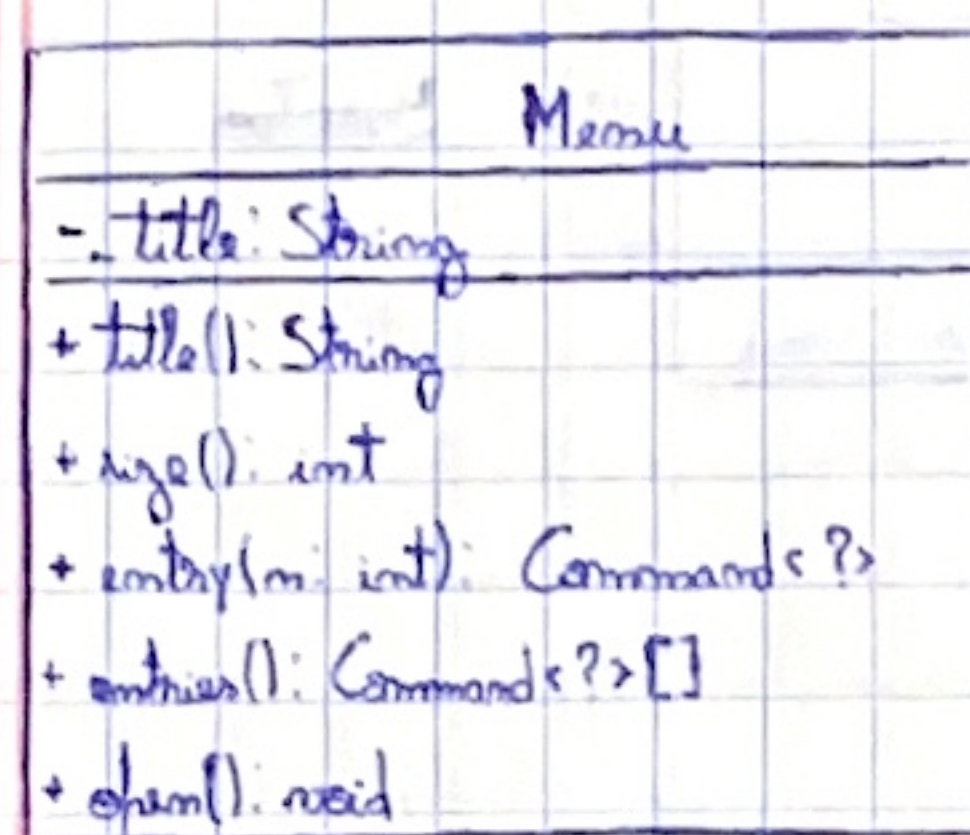 Menu
- _title: String
+ title(): String
+ size(): int
+ entry(n: int): Command<?>
+ entries(): Command<?>[]
+ open(): void